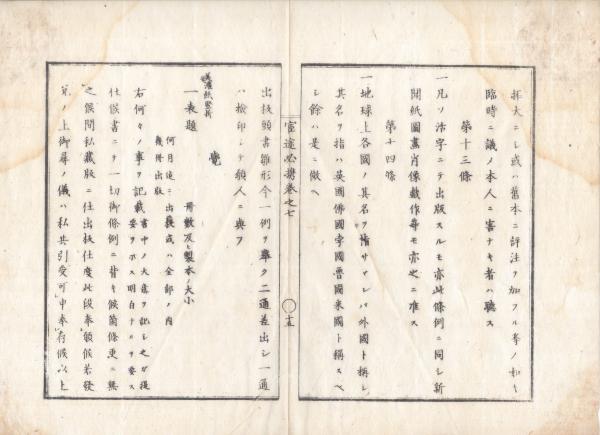 拡大ニシ或ハ舊本ニ評注ヲ加フル等ノ如キ
臨時ニ議ノ本人ニ害ナキ者ハ聽ス
第十三條
一凡ソ活字ニテ出版スルモ亦此條例ニ同シ新
聞紙圖畫肖像戲作等モ亦之ニ准ス
第十四條
一地球上各國ノ其名ヲ指サヾレバ外國ト稱シ
其名ヲ指ハ英國佛國孛國魯國米國ト稱スベ
シ餘ハ是ニ倣ヘ
官途必携卷之七
十五
出板願書雛形今一例ヲ舉ク二通差出シ一通
ハ檢印シテ願人ニ與フ
美濃紙竪折
覺
一表題
冊數及ヒ製本ノ大小
何月迄ニ出板或ハ全部ノ內
幾冊出版
右何々ノ事ヲ記載
書中ノ大旨ヲ記シ之ガ提
要ヲホス明白ナルヲ要ス
仕候書ニテ一切御條例ニ背キ候箇條更ニ無
之候間私藏版ニ仕出板仕度此段奉願候若發
兌ノ上御尋ノ儀ハ私共引受可申奉存候以上